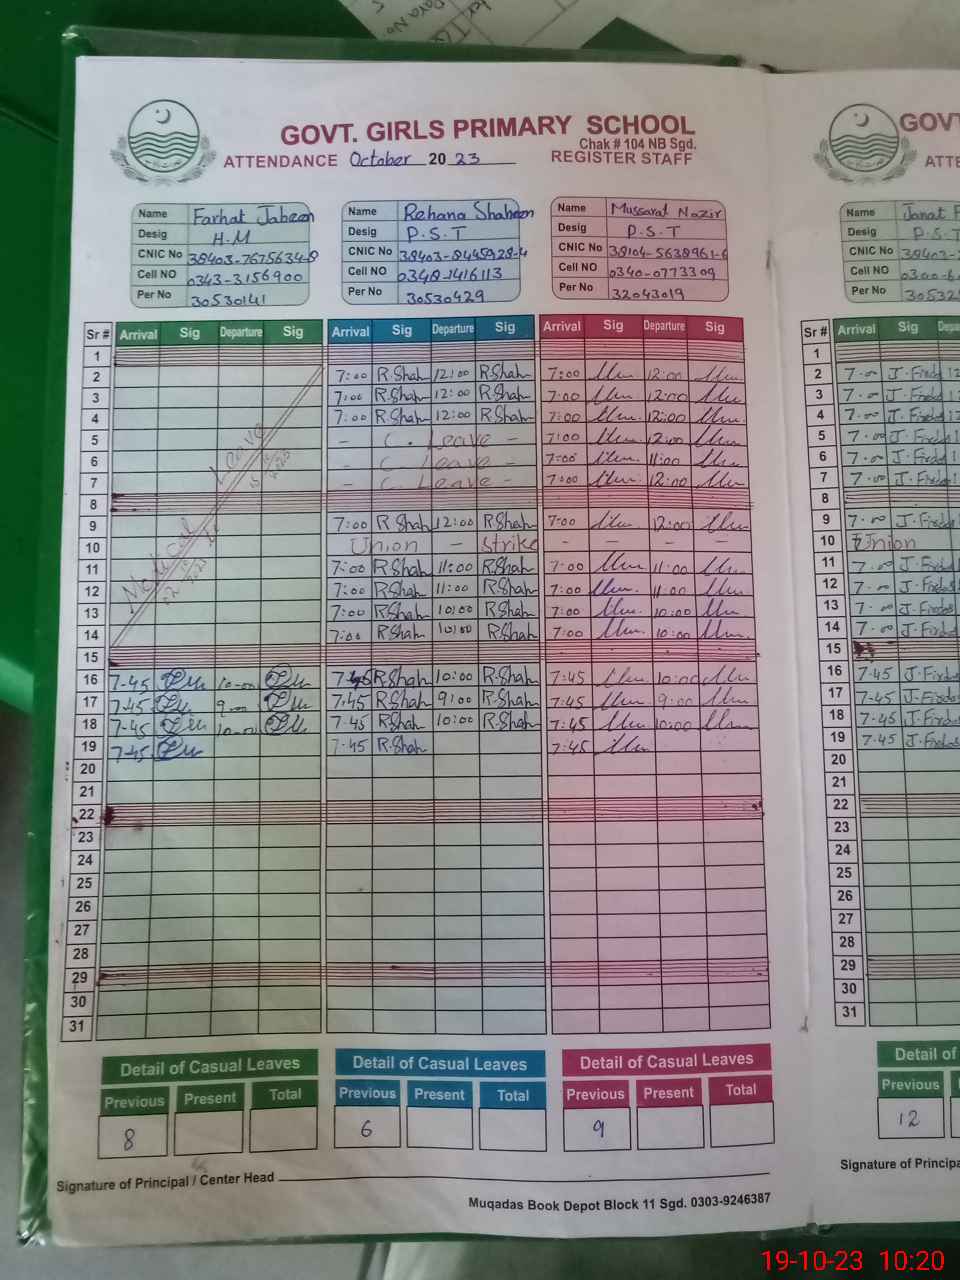 GOVT. GIRLS PRIMARY SCHOOL
Chak # 104 NB Sgd.
ATTENDANCE October 20 23 REGISTER STAFF
Name Farhat Jabeen
Desig H.M
CNIC No 38403-7675634-8
Cell NO 0343-3156900
Per No 30530141
Name Rehana Shaheen
Desig P.S.T
CNIC No 38403-8445928-4
Cell NO 0348-1416113
Per No 30530429
Name Mussarat Nazir
Desig P.S.T
CNIC No 38104-5638961-6
Cell NO 0340-0773309
Per No 32043019
Sr # Arrival Sig Departure Sig Arrival Sig Departure Sig Arrival Sig Departure Sig
1
2 7:00 R.Shah 12:00 R.Shah 7:00 12:00
3 7:00 R.Shah 12:00 R.Shah 7:00 12:00
4 7:00 R.Shah 12:00 R.Shah 7:00 12:00
5 - C. Leave - 7:00 12:00
6 - C. Leave - 7:00 11:00
7 - C. Leave - 7:00 12:00
8
Medical Leave
9 7:00 R.Shah 12:00 R.Shah 7:00 12:00
10 Union - Strike - - - -
11 7:00 R.Shah 11:00 R.Shah 7:00 11:00
12 7:00 R.Shah 11:00 R.Shah 7:00 11:00
13 7:00 R.Shah 10:00 R.Shah 7:00 10:00
14 7:00 R.Shah 10:00 R.Shah 7:00 10:00
15
16 7-45 10-00 7-45 R.Shah 10:00 R.Shah 7:45 10:00
17 7-45 9-00 7.45 R.Shah 9:00 R.Shah 7:45 9:00
18 7-45 10-00 7-45 R.Shah 10:00 R.Shah 7:45 10:00
19 7-45 7-45 R.Shah 7:45
20
21
22
23
24
25
26
27
28
29
30
31
Detail of Casual Leaves Detail of Casual Leaves Detail of Casual Leaves
Previous Present Total Previous Present Total Previous Present Total
8 6 9
Signature of Principal / Center Head
Muqadas Book Depot Block 11 Sgd. 0303-9246387
Name Janat
Desig P.S.T
CNIC No
Cell NO
Per No
Sr # Arrival Sig
1
2 7-00
3 7-00
4 7-00
5 7-00
6 7-00
7 7-00
8
9 7-00
10 Union
11 7-00
12 7-00
13 7-00
14 7-00
15
16 7-45
17 7-45
18 7-45
19 7-45
20
21
22
23
24
25
26
27
28
29
30
31
Detail of
Previous
12
Signature of
19-10-23 10:20